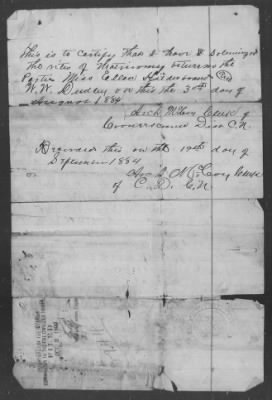 This is to certify that I have Solemnized
the rites of Matrimony between the
Parties Miss Ellen Hildebrand and
W.W. Dudley on this the 3rd day of
August 1884
Arch McCoy Clerk of
Cooweescoowee Dist C.N.
Recorded this on the 19th day of
September 1884
Arch McCoy Clerk
of C. D. C.N.